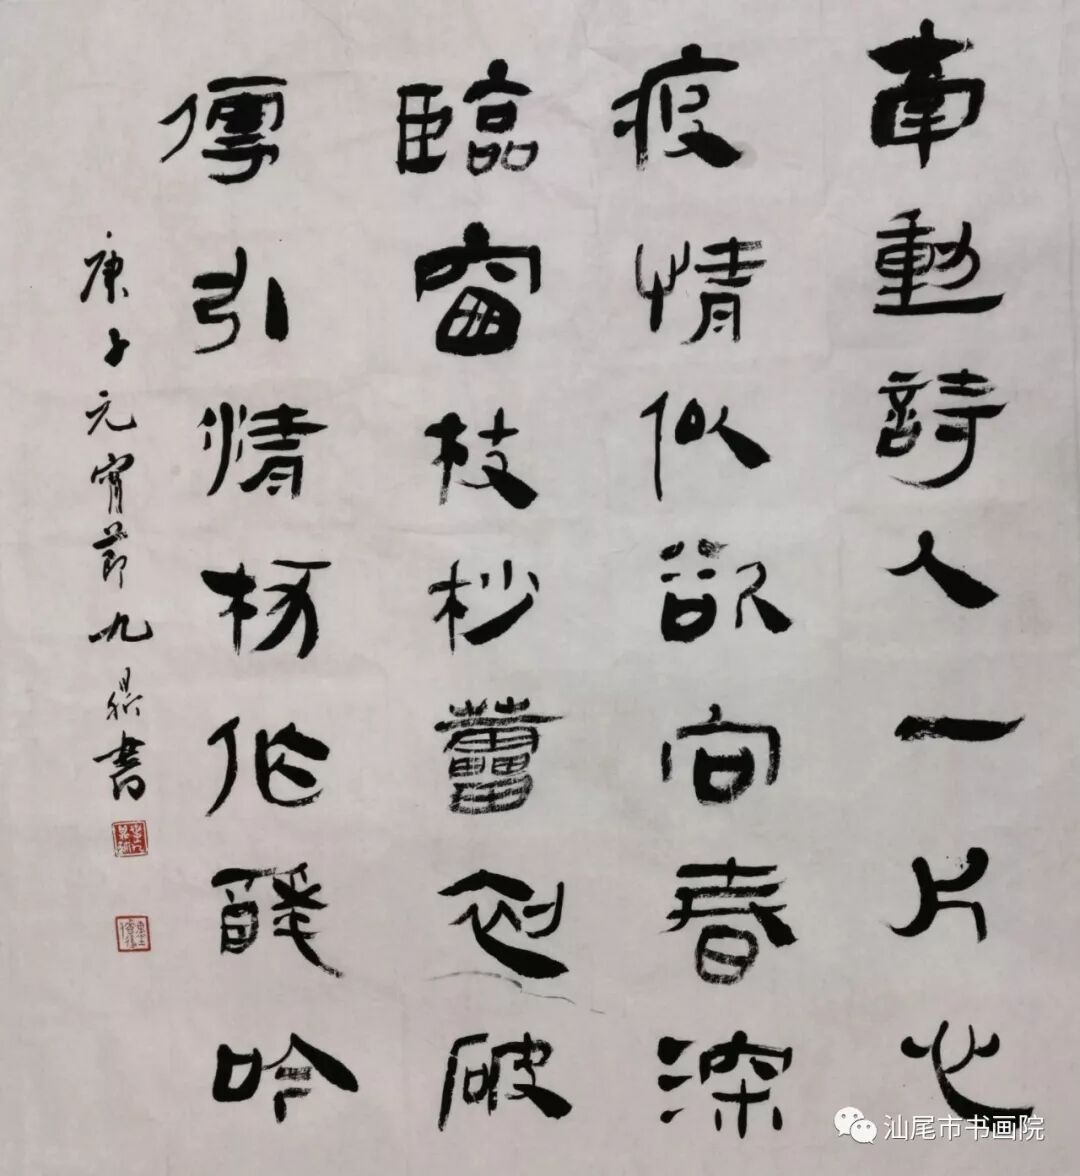 牽動詩人一片心
疫情似欲向春深
臨窗枝杪蕾初破
引清作吟
庚子元宵節九鼎書
汕尾市书画院